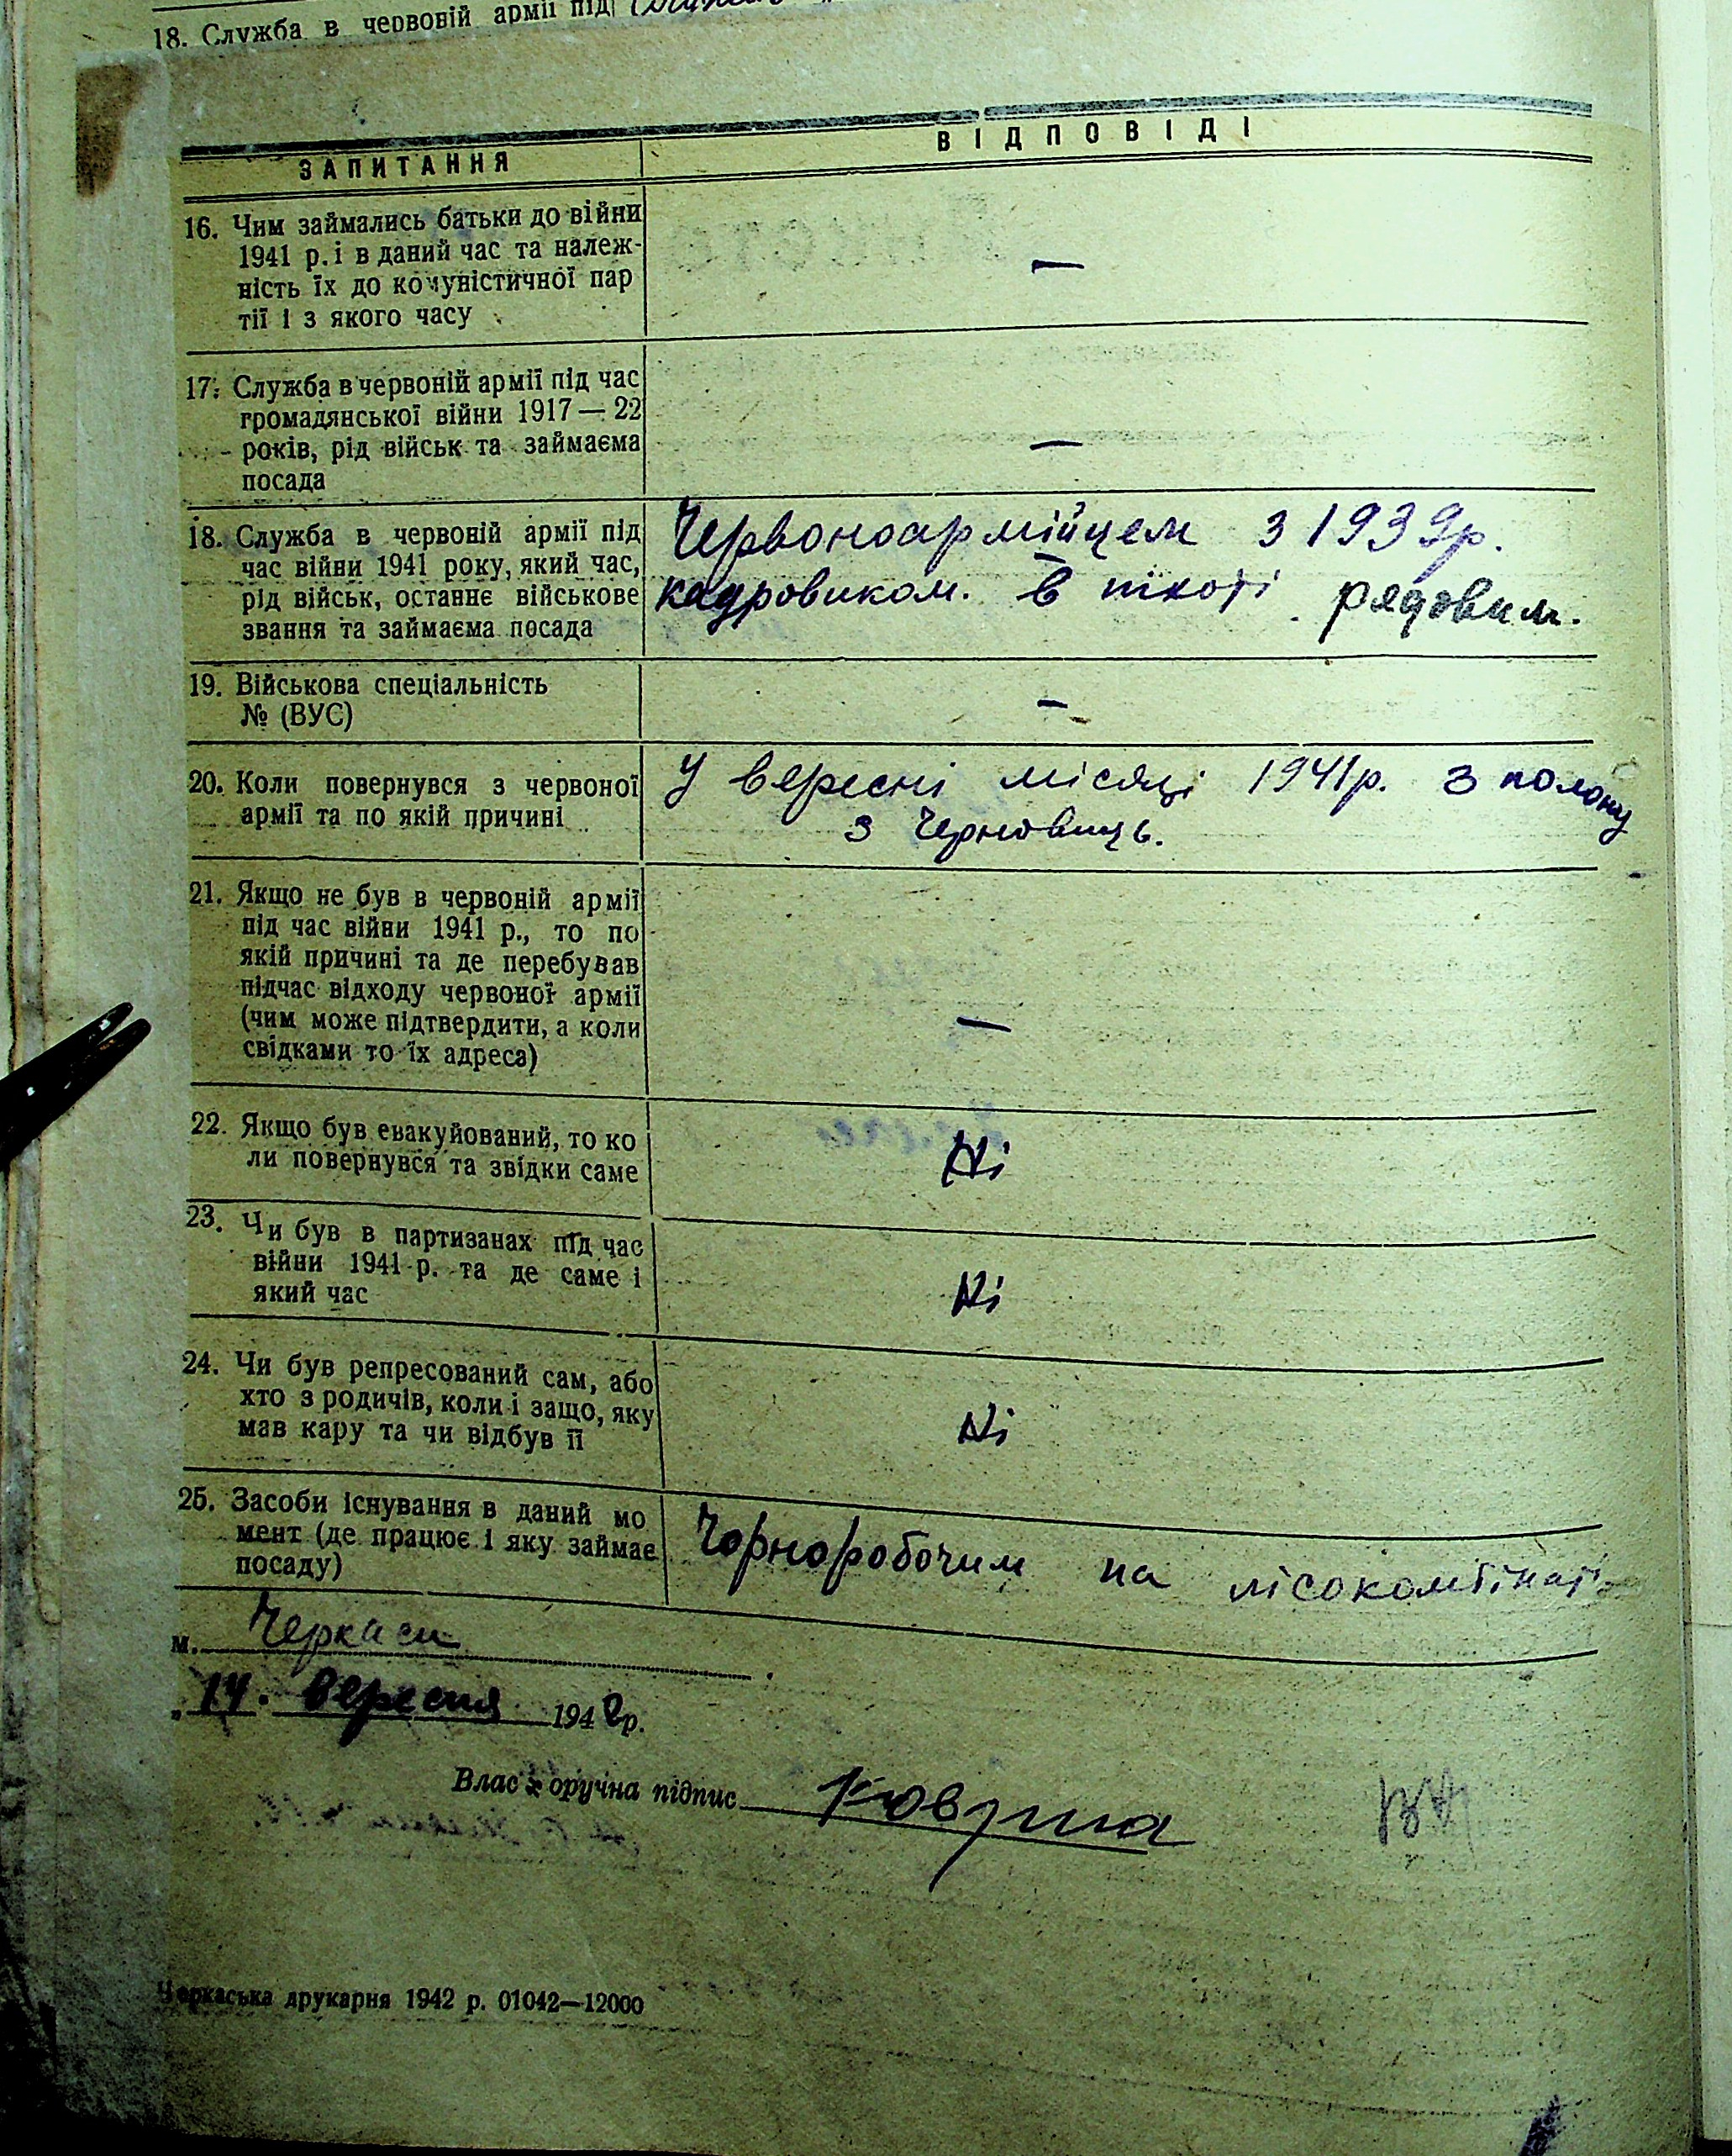 18. Служба в червоній армії під
ЗАПИТАННЯ
ВІДПОВІДІ
16. Чим займались батьки до війни
1941 р. і в даний час та належ-
ність їх до комуністичної пар
тії і з якого часу
—
17. Служба в червоній армії під час
громадянської війни 1917 — 22
років, рід військ та займаєма
посада
—
18. Служба в червоній армії під
час війни 1941 року, який час,
рід військ, останнє військове
звання та займаєма посада
Червоноармійцем з 1939р.
кадровиком. в піхоті рядовим.
19. Військова спеціальність
№ (ВУС)
—
20. Коли повернувся з червоної
армії та по якій причині
У вересні місяці 1941р. з полону
з Черновиць.
21. Якщо не був в червоній армії
під час війни 1941 р., то по
якій причині та де перебував
підчас відходу червоної армії
(чим може підтвердити, а коли
свідками то їх адреса)
—
22. Якщо був евакуйований, то ко
ли повернувся та звідки саме
Ні
23. Чи був в партизанах під час
війни 1941 р. та де саме і
який час
Ні
24. Чи був репресований сам, або
хто з родичів, коли і защо, яку
мав кару та чи відбув її
Ні
25. Засоби існування в даний мо
мент (де працює і яку займає
посаду)
Чорноробочим на лісокомбінаті
м. Черкаси
„14. вересня 1942р.
Власноручна підпис
Черкаська друкарня 1942 р. 01042—12000